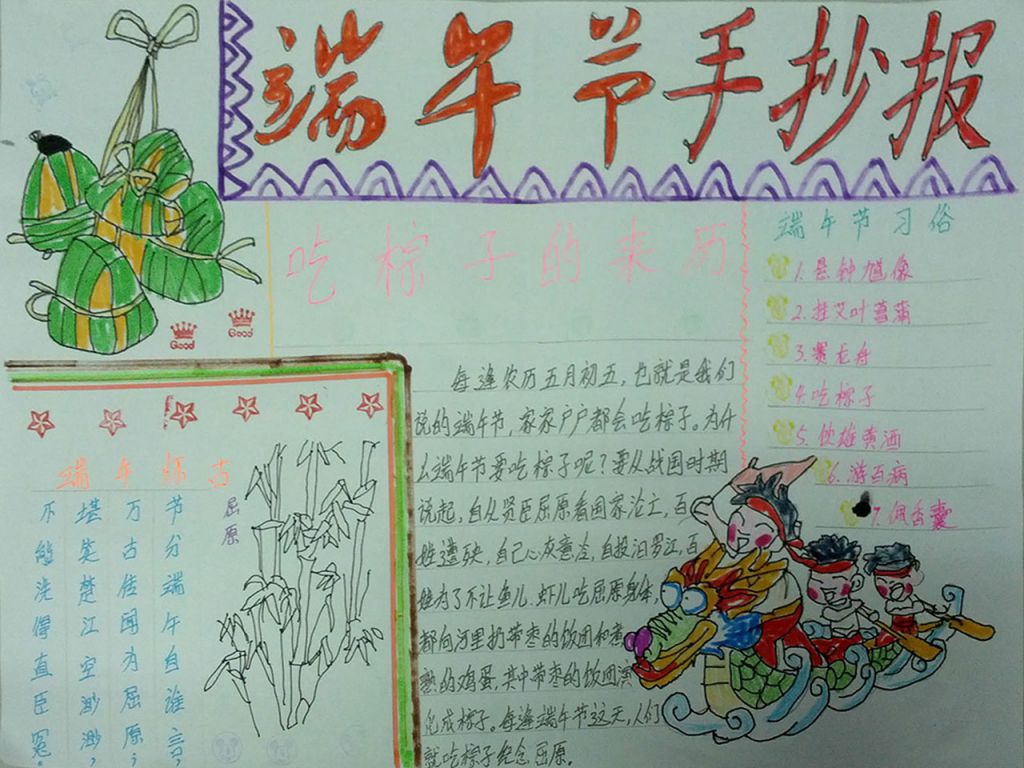 端午节手抄报
Good
Good
吃粽子的来历
每逢农历五月初五,也就是我们
说的端午节,家家户户都会吃粽子。为什
么端午节要吃粽子呢?要从战国时期
说起,自从贤臣屈原看国家沦亡,百
姓遭殃,自己心灰意冷,自投汨罗江,百
姓为了不让鱼儿、虾儿吃屈原身体,
都向河里扔带枣的饭团和煮
熟的鸡蛋,其中带枣的饭团演
化成粽子。每逢端午节这天,人们
就吃粽子纪念屈原。
端午节习俗
1.悬钟馗像
2.挂艾叶菖蒲
3.赛龙舟
4.吃粽子
5.饮雄黄酒
6.游百病
7.佩香囊
端午怀古
屈原
节分端午自谁言,
万古传闻为屈原;
堪笑楚江空渺渺,
不能洗得直臣冤。